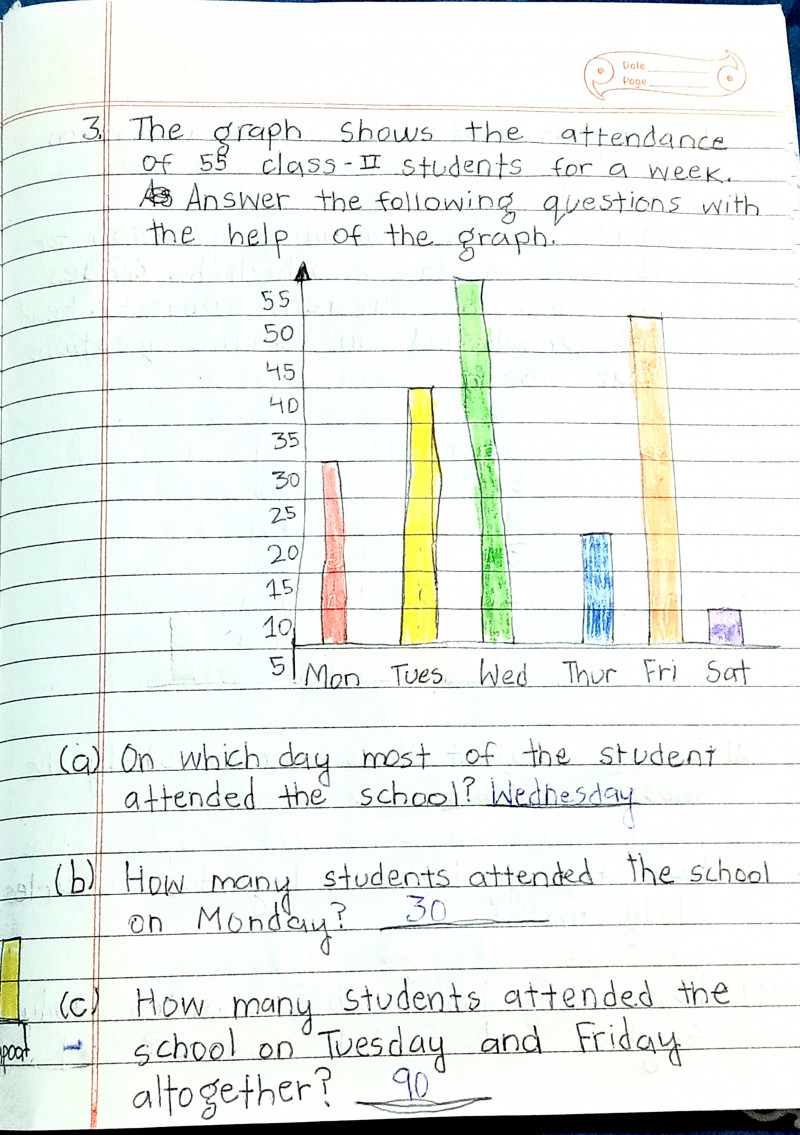 Date
Page
3. The graph shows the attendance
of 55 class-II students for a week.
Answer the following questions with
the help of the graph.
55
50
45
40
35
30
25
20
15
10
5
Mon Tues Wed Thur Fri Sat
(a) On which day most of the student
attended the school? Wednesday
(b) How many students attended the school
on Monday? 30
(c) How many students attended the
school on Tuesday and Friday
altogether? 90